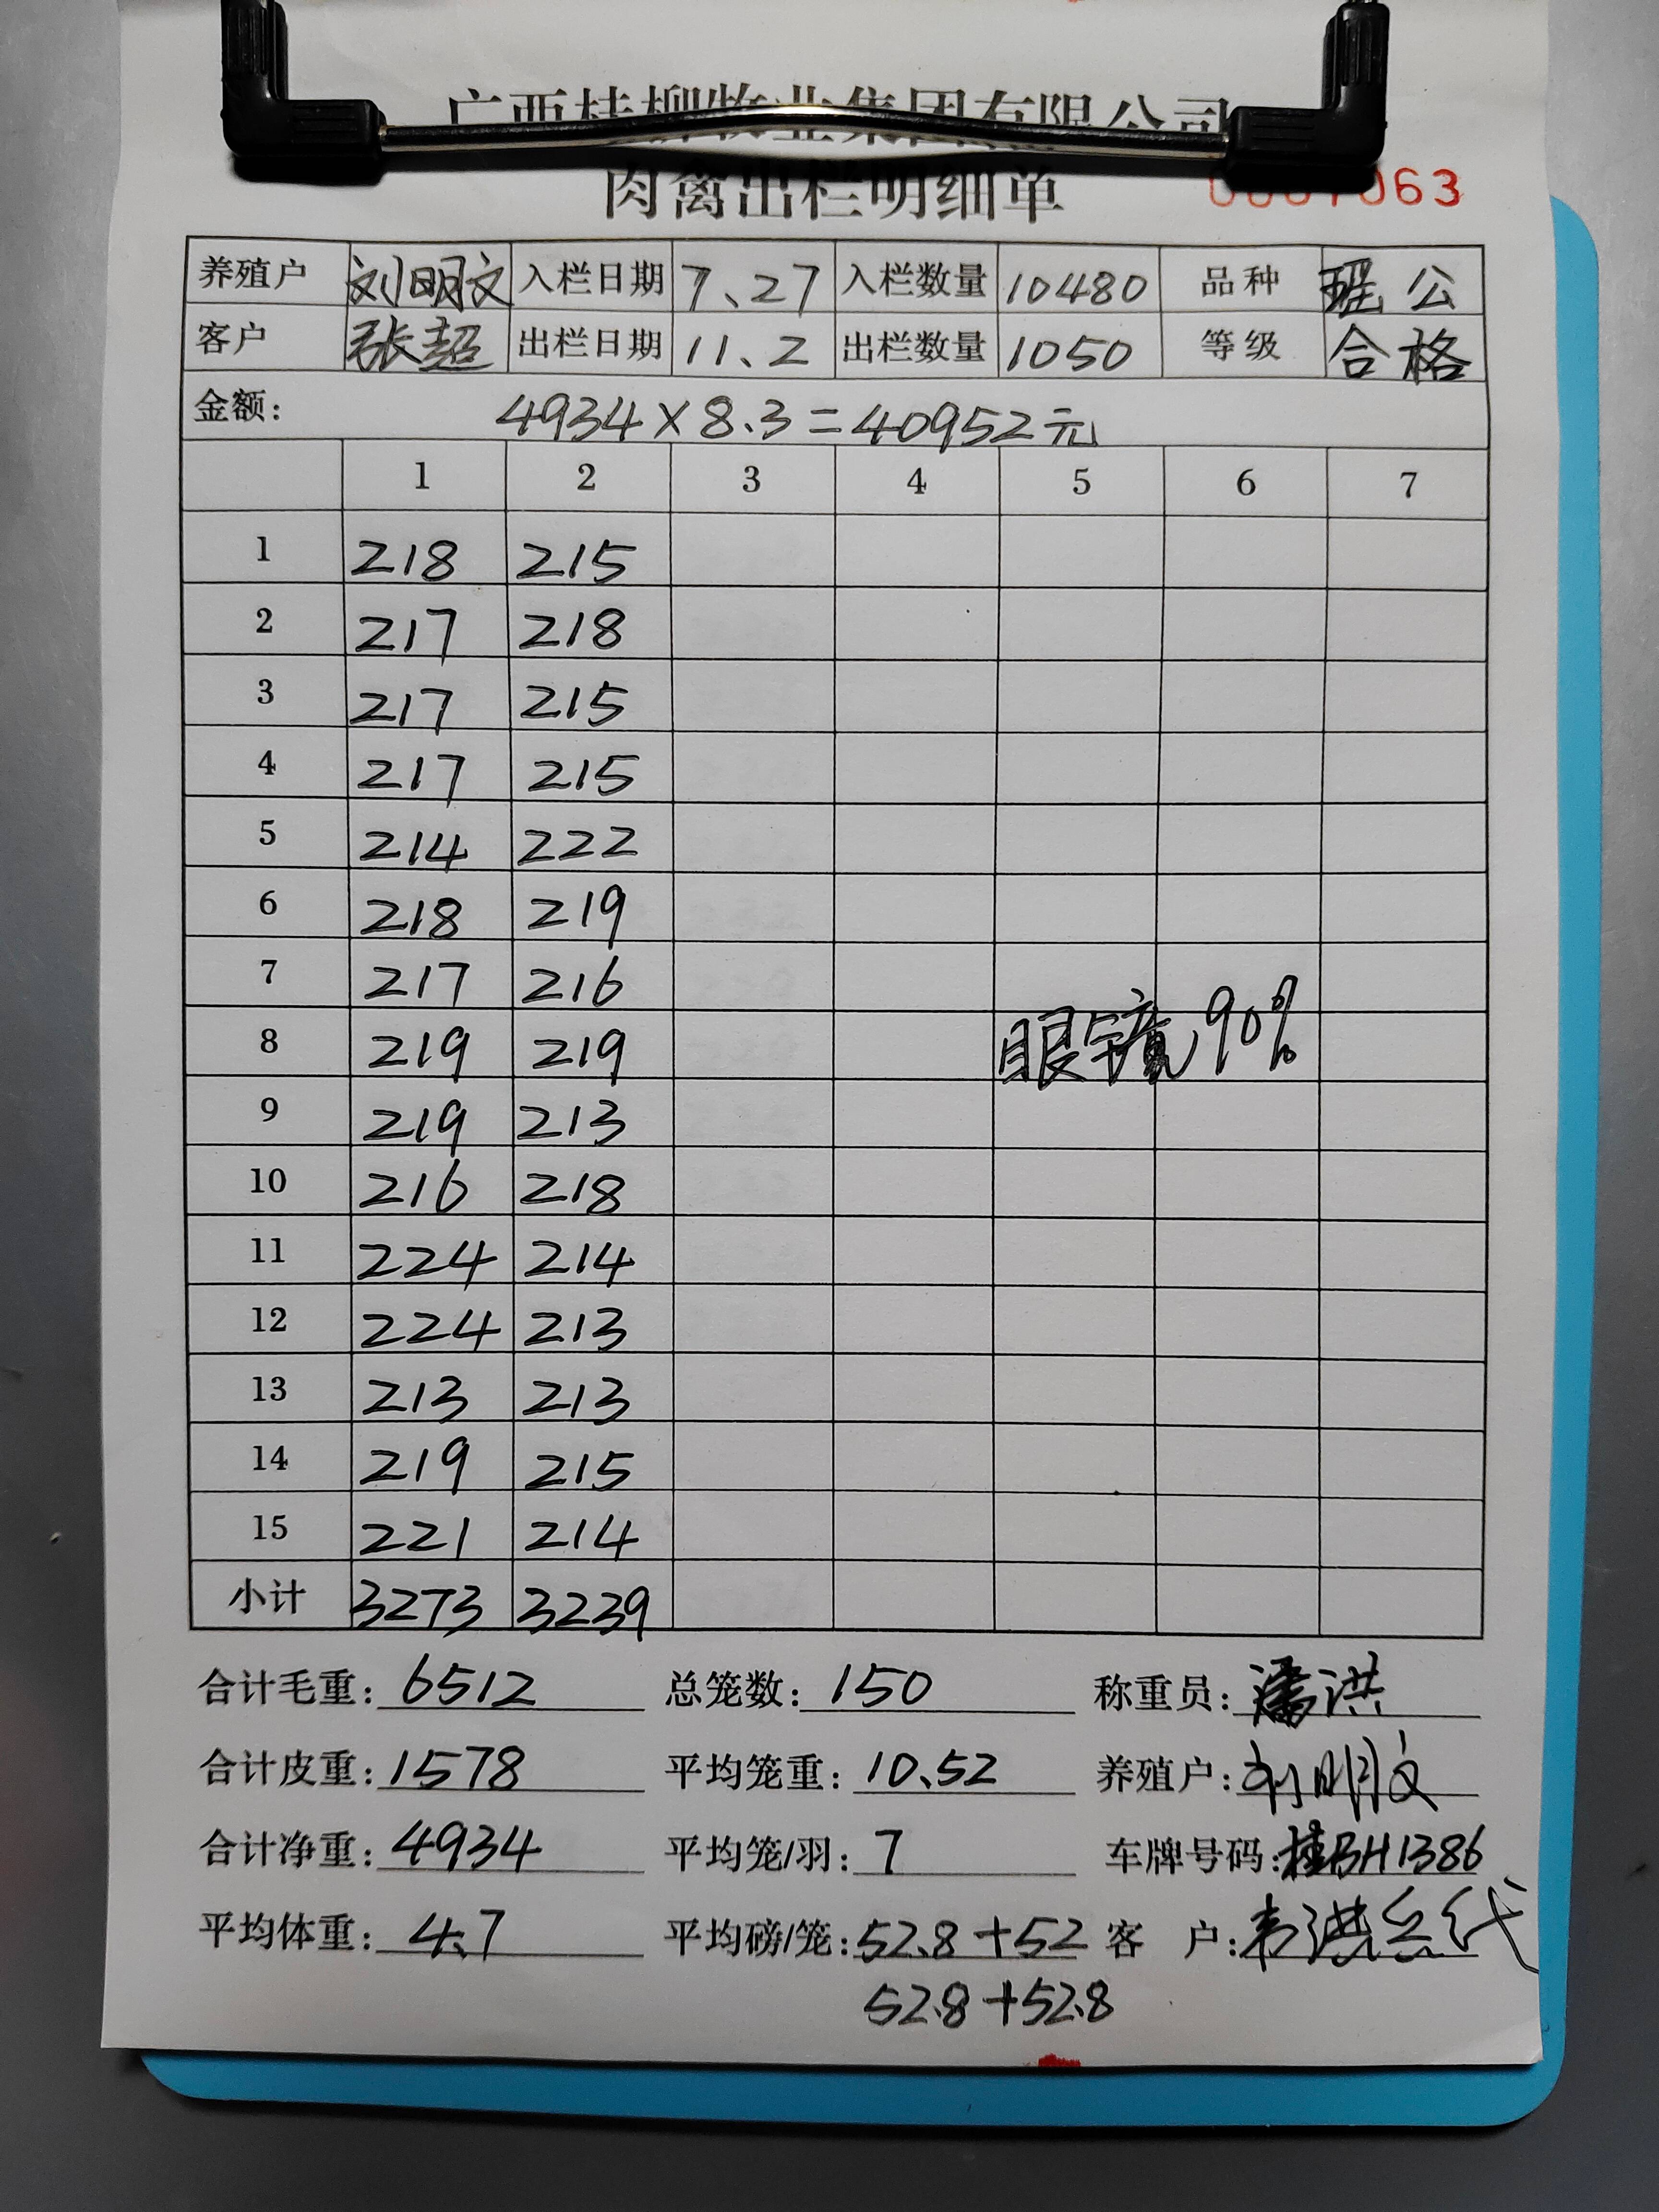 广西桂柳牧业集团有限公司
肉禽出栏明细单
063
养殖户 刘明文 入栏日期 7、27 入栏数量 10480 品种 瑶公
客户 张超 出栏日期 11、2 出栏数量 1050 等级 合格
金额: 4934×8.3=40952元
1 2 3 4 5 6 7
1 218 215
2 217 218
3 217 215
4 217 215
5 214 222
6 218 219
7 217 216
8 219 219 眼镜90%
9 219 213
10 216 218
11 224 214
12 224 213
13 213 213
14 219 215
15 221 214
小计 3273 3239
合计毛重: 6512 总笼数: 150 称重员: 潘洪
合计皮重: 1578 平均笼重: 10.52 养殖户: 刘明文
合计净重: 4934 平均笼/羽: 7 车牌号码: 桂BH1386
平均体重: 4.7 平均磅/笼: 52.8+52 客 户: 韦洪兵代
52.8+52.8